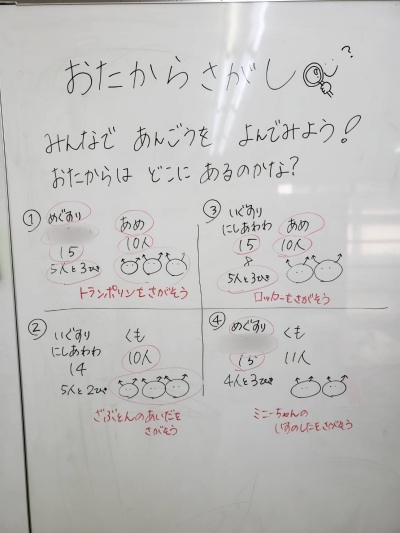 おたからさがし ?
みんなで あんごうを よんでみよう!
おたからは どこに あるのかな?
① めぐすり あめ
15 10人
5人と3ひき
トランポリンをさがそう
③ いぐすり あめ
にしあわわ
15 10人
8
5人と3ひき
ロッカーをさがそう
② いぐすり くも
にしあわわ 10人
14
5人と2ひき
ざぶとんのあいだを
さがそう
④ めぐすり くも
15 11人
4人と3ひき
ミニーちゃんの
いすのしたをさがそう